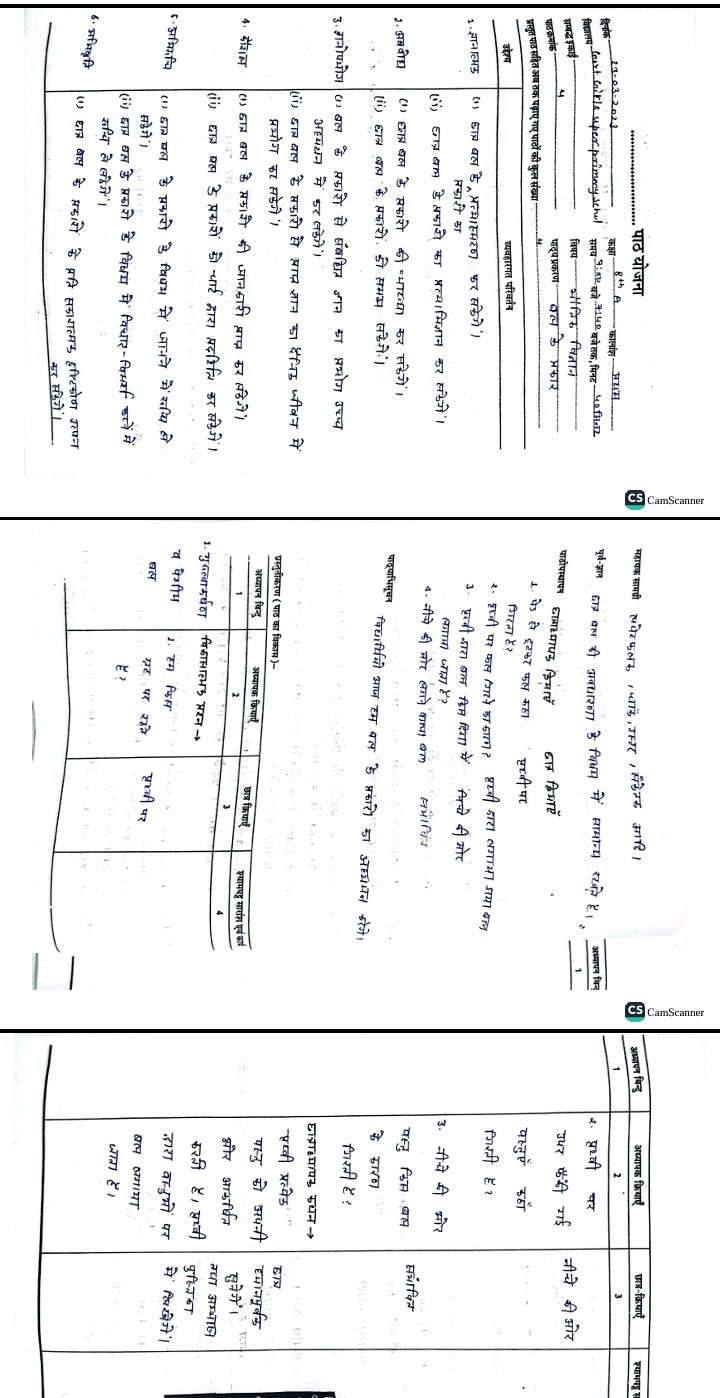 पाठ योजना
दिनांक 23-03-2023 कक्षा 8th A कालांश प्रथम
विद्यालय Govt Girls upper primary school समय 9:00 बजे 9:40 बजे तक, मिनट 40 मिनट
सम्बद्ध इकाई विषय भौतिक विज्ञान
पाठक्रमांक 4 पाठ्य प्रकरण बल के प्रकार
प्रस्तुत पाठ सहित अब तक पढ़ाए गए पाठों की कुल संख्या
उद्देश्य व्यवहारगत परिवर्तन
1. ज्ञानात्मक (i) छात्र बल के प्रकारों का प्रत्यास्मरण कर सकेंगे।
(ii) छात्र बल के प्रकारों का प्रत्याभिज्ञान कर सकेंगे।
2. अवबोध (i) छात्र बल के प्रकारों की व्याख्या कर सकेंगे।
(ii) छात्र बल के प्रकारों को समझ सकेंगे।
3. ज्ञानोपयोग (i) बल के प्रकारों से संबंधित ज्ञान का प्रयोग उच्च
अध्ययन में कर सकेंगे।
(ii) छात्र बल के प्रकारों से प्राप्त ज्ञान का दैनिक जीवन में
प्रयोग कर सकेंगे।
4. कौशल (i) छात्र बल के प्रकारों की जानकारी प्राप्त कर सकेंगे।
(ii) छात्र बल के प्रकारों को चार्ट द्वारा प्रदर्शित कर सकेंगे।
5. अभिरुचि (i) छात्र बल के प्रकारों के विषय में जानने में रुचि ले
सकेंगे।
(ii) छात्र बल के प्रकारों के विषय में विचार-विमर्श करने में
रुचि ले सकेंगे।
6. अभिवृत्ति (i) छात्र बल के प्रकारों के प्रति सकारात्मक दृष्टिकोण उत्पन्न
कर सकेंगे।
CS CamScanner
सहायक सामग्री लपेटफलक, चार्ट, डस्टर, संकेतक आदि।
पूर्व-ज्ञान छात्र बल की अवधारणा के विषय में सामान्य रखते हैं।
अध्यापन बिन्दु
1
पाठोपस्थापन छात्राध्यापक क्रियाएँ छात्र क्रियाएँ
1. पेड़ से टूटकर फल कहा पृथ्वी पर
गिरता है?
2. पृथ्वी पर फल गिरने का कारण? पृथ्वी द्वारा लगाया गया बल
3. पृथ्वी द्वारा बल किस दिशा में निचे की ओर
लगाया जाता है?
4. नीचे की ओर लगने वाला बल संभावित
पाठ्याभिसूचन विद्यार्थियों आज हम बल के प्रकारों का अध्ययन करेंगे।
प्रस्तुतीकरण ( पाठ का विकास )–
अध्यापन बिन्दु अध्यापक क्रियाएँ छात्र क्रियाएँ श्यामपट्ट सारांश एवं कार्य
1 2 3 4
1. गुरुत्वाकर्षण विकासात्मक प्रश्न →
व पेशीय 1. हम किस
बल ग्रह पर रहते पृथ्वी पर
हैं?
CS CamScanner
अध्यापन बिन्दु अध्यापक क्रियाएँ छात्र-क्रियाएँ श्यामपट्ट स
1 2 3
2. पृथ्वी पर
उपर फेंकी गई नीचे की ओर
वस्तुएँ कहाँ
गिरती है?
3. नीचे की ओर
वस्तु किस बल संभावित
के कारण
गिरती है?
छात्राध्यापक कथन →
पृथ्वी प्रत्येक छात्र
वस्तु को अपनी ध्यानपूर्वक
ओर आकर्षित सुनेंगे।
करती है। पृथ्वी तथा अभ्यास
द्वारा वस्तुओं पर पुस्तिका
बल लगाया में लिखेंगे।
जाता है।